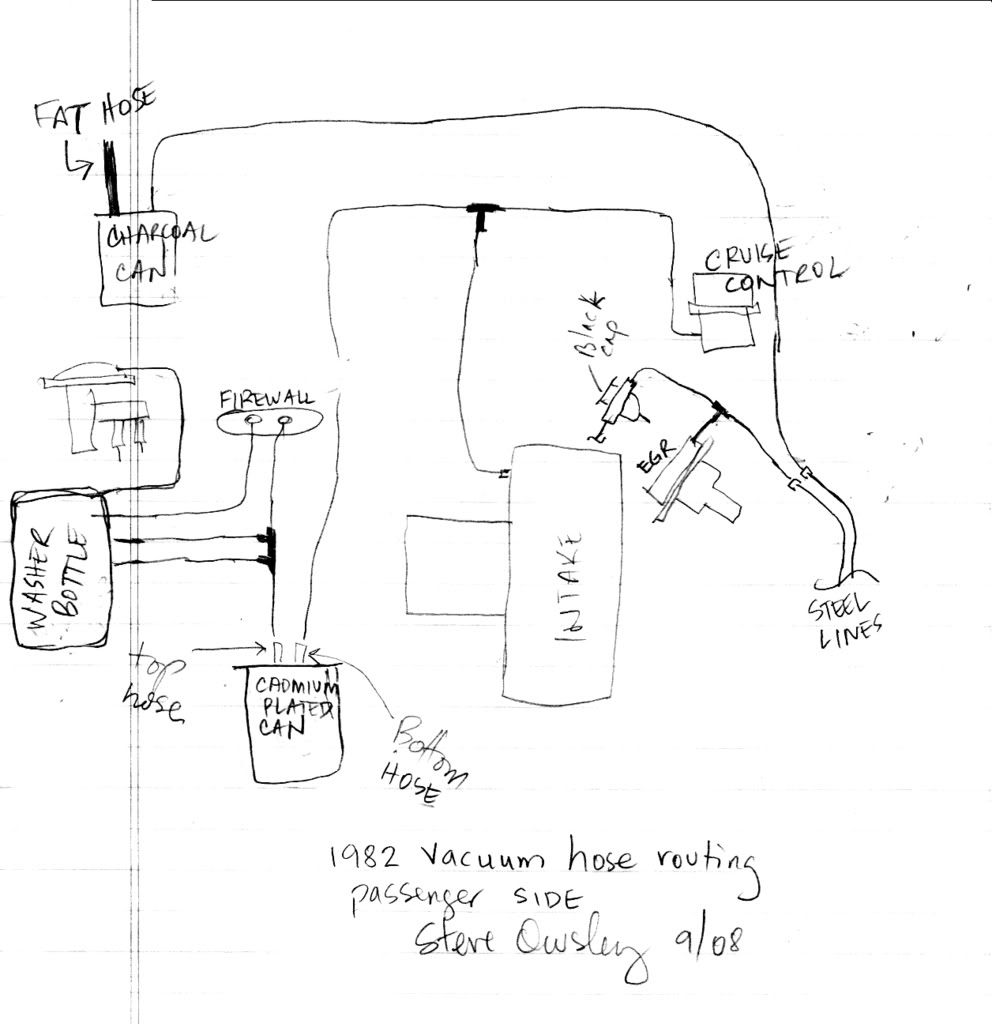 FAT HOSE
CHARCOAL
CAN
CRUISE
CONTROL
Black
cap
FIREWALL
EGR
WASHER
BOTTLE
INTAKE
STEEL
LINES
top
hose
CADMIUM
PLATED
CAN
Bottom
HOSE
1982 Vacuum hose routing
passenger SIDE
Steve Owsley 9/08